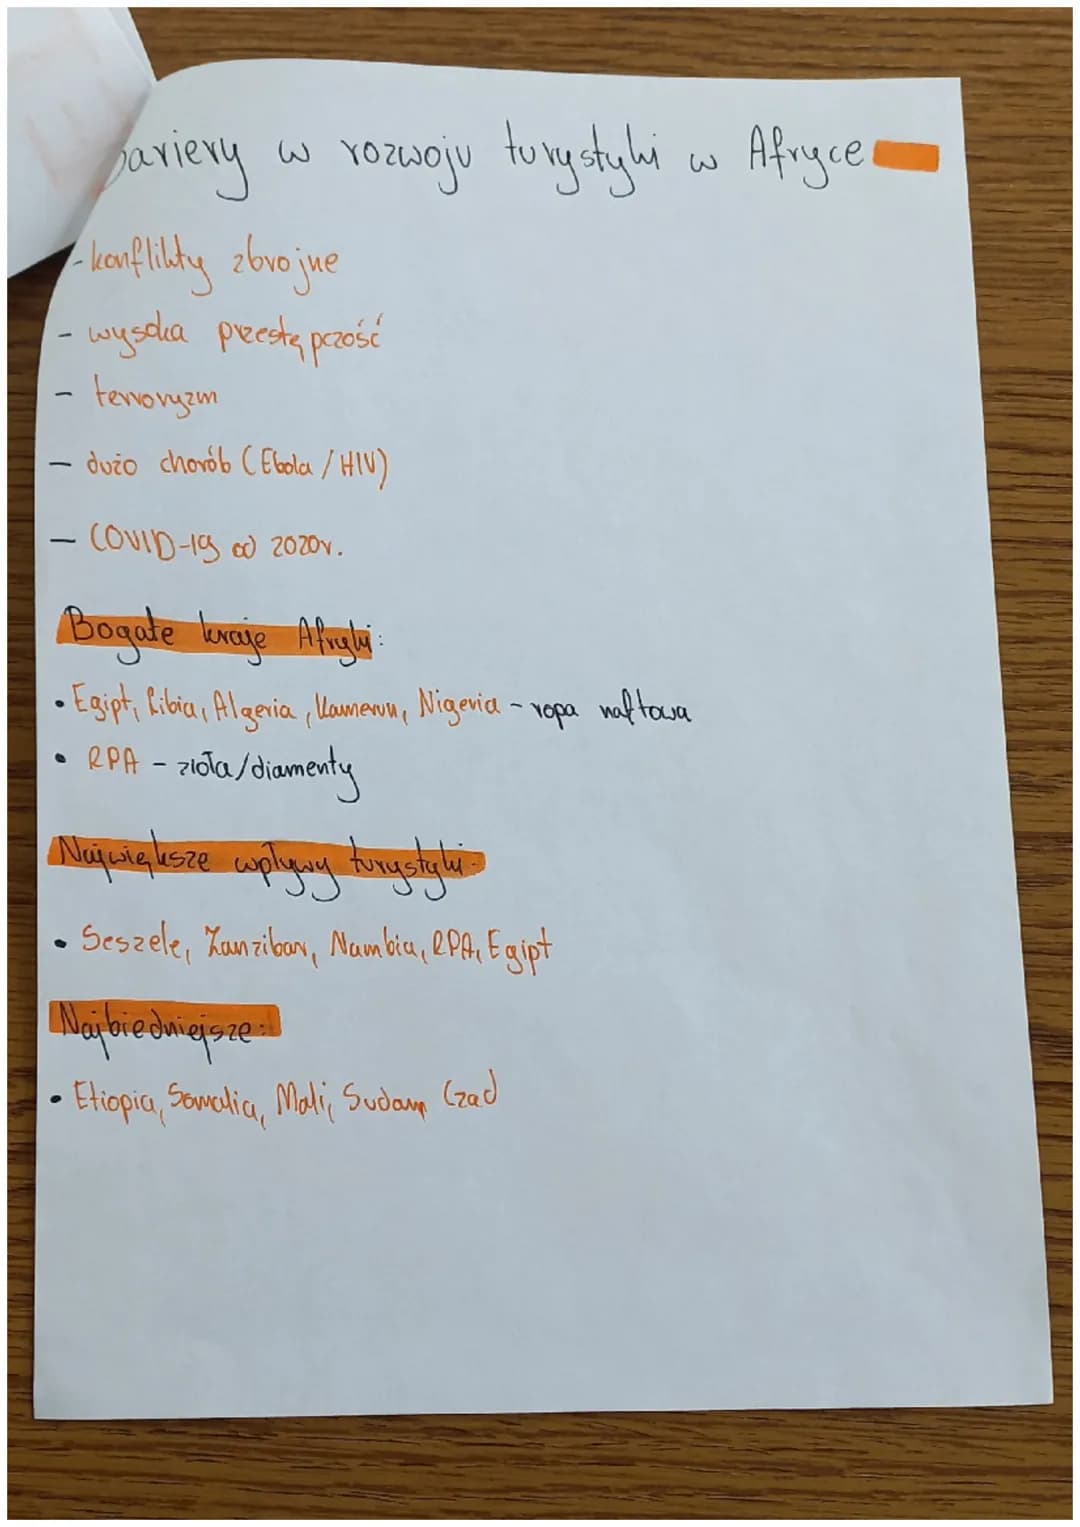 bariery w rozwoju turystyki w Afryce
- konflikty zbrojne
- wysoka przestępczość
- terroryzm
- dużo chorób (Ebola / HIV)
- COVID-19 od 2020r.
Bogate kraje Afryki:
• Egipt, Libia, Algeria, Kamerun, Nigeria - ropa naftowa
• RPA - złota/diamenty
Największe wpływy turystyki-
• Seszele, Zanzibar, Nambia, RPA, Egipt
Najbiedniejsze:
• Etiopia, Somalia, Mali, Sudan, Czad